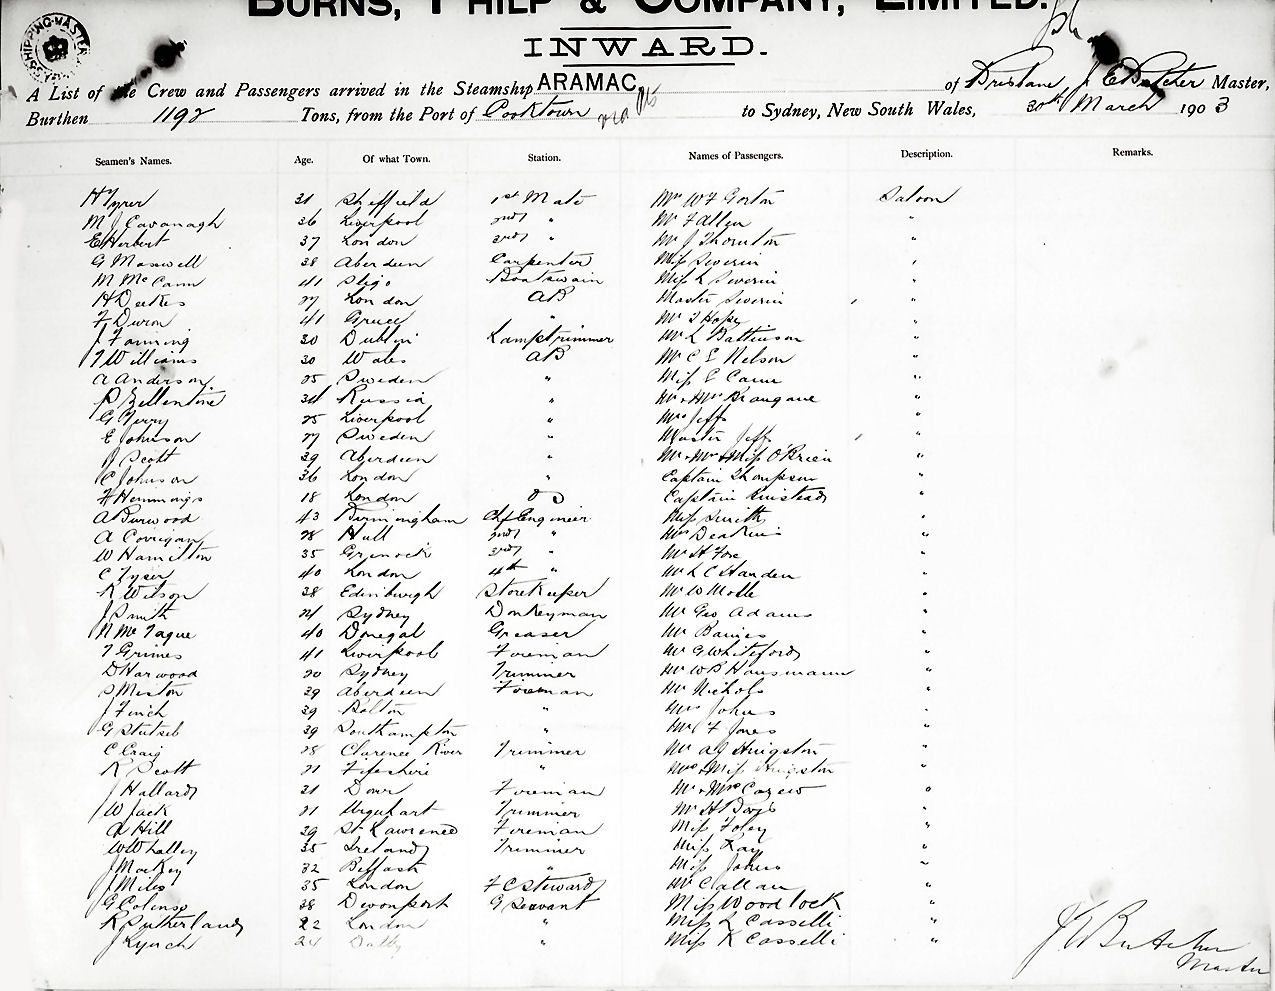 BURNS, PHILP & COMPANY, LIMITED.
INWARD.
A List of the Crew and Passengers arrived in the Steamship ARAMAC of Brisbane J E Butcher Master,
Burthen 1192 Tons, from the Port of Cooktown via Pts to Sydney, New South Wales, 30th March 1903
Seamen's Names. Age. Of what Town. Station. Names of Passengers. Description. Remarks.
H Tyrer 31 Sheffield 1st Mate Mr W F Gorton Saloon
M J Cavanagh 36 Liverpool 2nd " Mr F Allen "
E Herbert 37 London 3rd " Mr J Thornton "
G Maxwell 38 Aberdeen Carpenter Miss Severin "
M McCann 41 Sligo Boatswain Miss L Severin "
H Deekes 27 London AB Master Severin "
F 41 Greece " Mr T Hope "
J Fanning 30 Dublin Lamptrimmer Mr L Battinson "
T Williams 30 Wales AB Mr C E Nelson "
A Anderson 25 Sweden " Miss E Cann "
P Zellentine 34 Russia " Mr & Mrs "
G Terry 25 Liverpool " Mrs Jeffs "
E Johnson 27 Sweden " Master Jeffs "
J Scott 39 Aberdeen " Mr & Mrs & Miss O'Brien "
C Johnson 36 London " Captain Thompson "
F Hemmings 18 London OS Captain Kinistead "
A Burwood 43 Birmingham Chf Engineer Miss Smith "
A Corrigan 28 Hull 2nd " Mrs Deakins "
W Hamilton 35 Grenock 3rd " Mr H Foxe "
C Tyser 40 London 4th " Mr L C Standen "
R Wilson 38 Edinburgh Storekeeper Mr W Motte "
J Smith 21 Sydney Donkeyman Mr Geo Adams "
N McTague 40 Donegal Greaser Mr Banies "
T Grimes 41 Liverpool Foreman Mr G Whiteford "
D Harwood 20 Sydney Trimmer Mr W B Hausmann "
S Meston 39 Aberdeen Foreman Mr Nichols "
J Finch 39 Bolton " Mrs Johns "
G Stutseb 39 Southampton " Mr F Jones "
C Craig 28 Clarence River Trimmer Mr A J Huigston "
R Scott 21 Fifeshire " Mrs & Miss Huigston "
J Hallard 31 Dover Foreman Mr & Mrs Carew "
W Jack 21 Urquhart Trimmer Mr H Boyd "
A Hill 39 St Lawrence Foreman Miss Foley "
W Whalley 35 Ireland Trimmer Miss Kay "
J Mackey 32 Belfast " Miss Johns "
J Miles 35 London F C Steward Mr Callan "
G Colenso 38 Devonport G Servant Miss Woodlock "
R Sutherland 22 London " Miss L Casselli "
J Lynch 24 Dalby " Miss K Casselli "
J E Butcher
Master